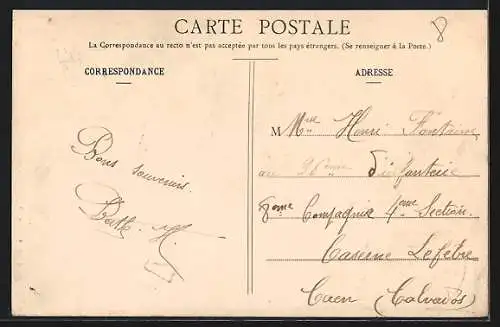 CARTE POSTALE
La Correspondance au recto n'est pas acceptée par tous les pays étrangers. (Se renseigner à la Poste.)
8
CORRESPONDANCE
Bons souvenirs
Berth. H.
ADRESSE
M Henri Fontaine
au 36ème d'infanterie
8ème Compagnie 4ème Section
Caserne Lefèbre
Caen (Calvados)